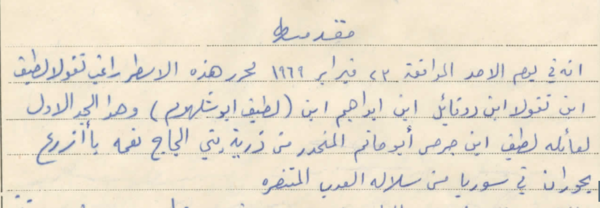 مقدمه
انه في يوم الاحد الموافقة ٢٣ فبراير ١٩٦٩ نحرر هذه الاسطر راغب نقولا لطيف
ابن نقولا ابن روفائيل ابن ابراهيم ابن (لطيف ابو شلهوم) وهذا الجد الاول
لعائله لطيف ابن جرجس أبو حاتم المنحدر من ذرية بني الحاج نعمه بأزرع
بحوران في سوريا من سلاله العرب المتنصره